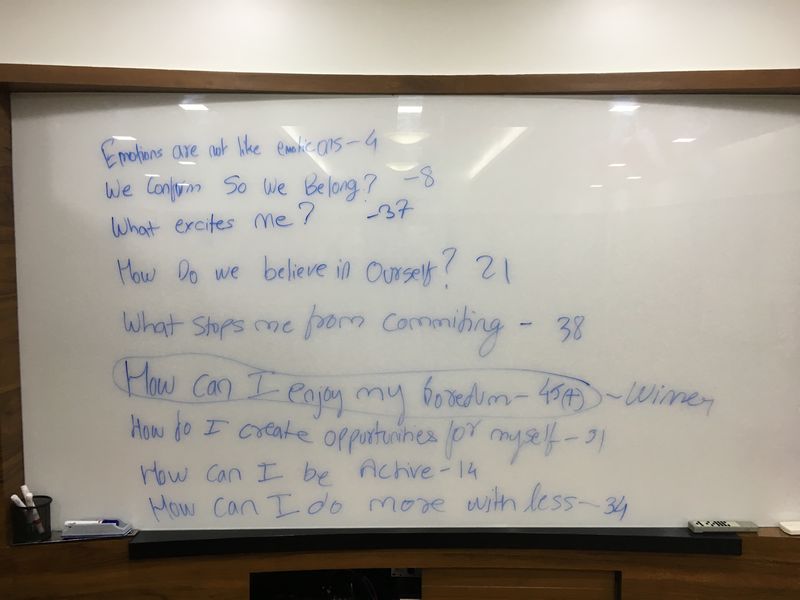 Emotions are not like emoticons - 4
We Confirm So We Belong? - 8
What excites me? - 37
How Do we believe in Ourself? 21
What stops me from Commiting - 38
How can I enjoy my boredum - 45(+) - Winner
How do I create opportunities for myself - 31
How can I be Active - 14
How can I do more with less - 34